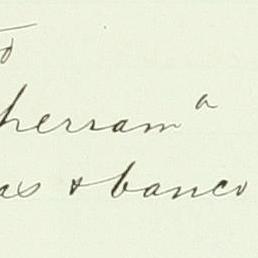 herram^a
as & banco